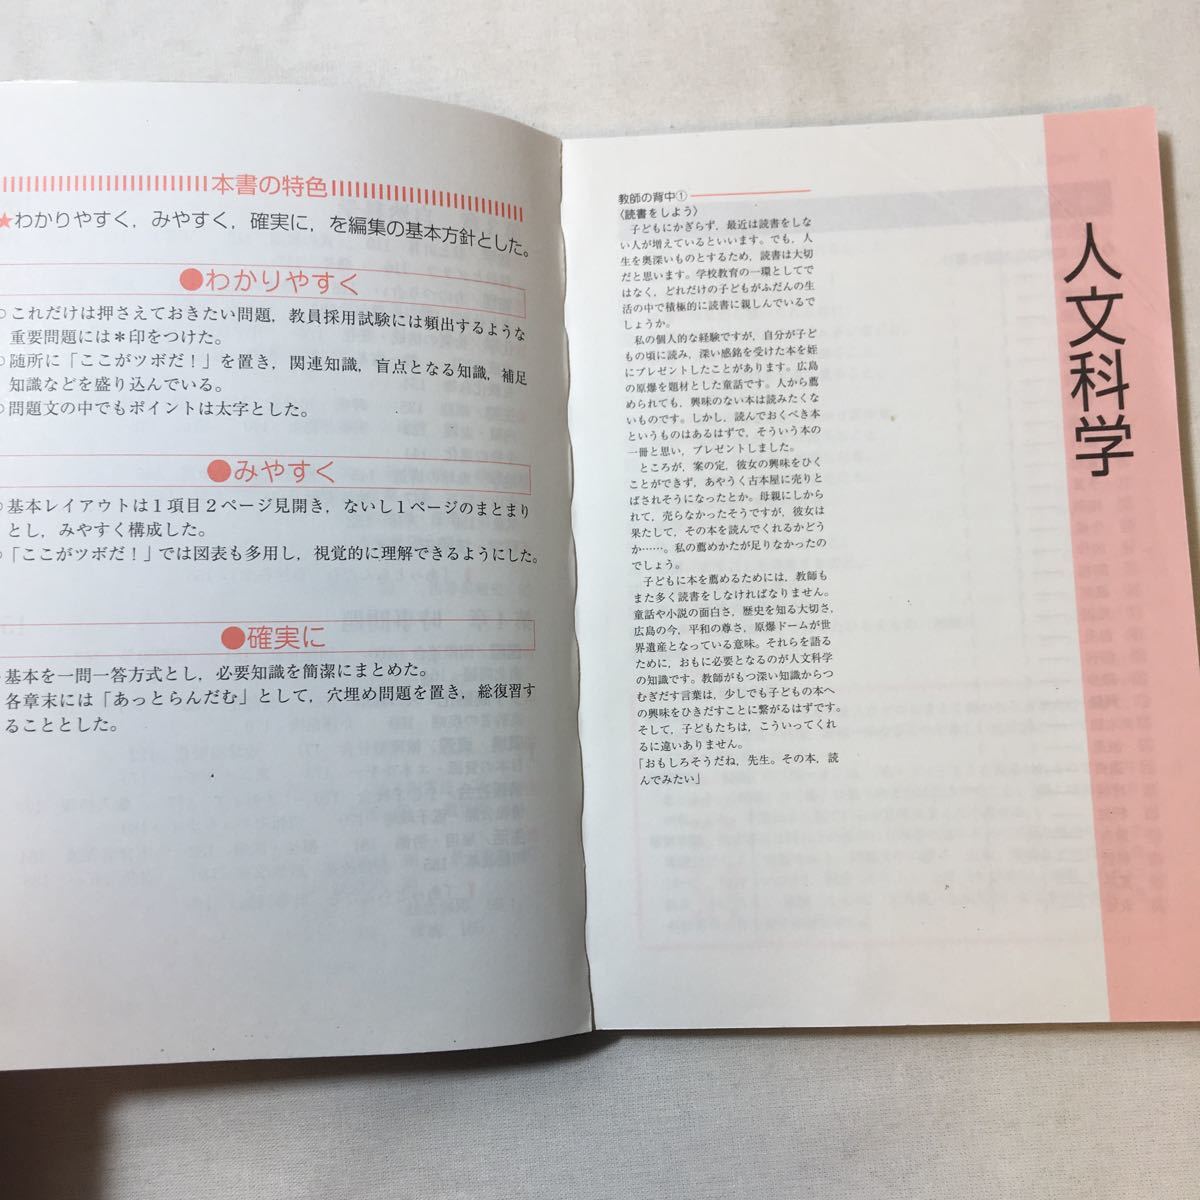 本書の特色
★わかりやすく，みやすく，確実に，を編集の基本方針とした。
●わかりやすく
○これだけは押さえておきたい問題，教員採用試験には頻出するような
重要問題には＊印をつけた。
○随所に「ここがツボだ！」を置き，関連知識，盲点となる知識，補足
知識などを盛り込んでいる。
○問題文の中でもポイントは太字とした。
●みやすく
○基本レイアウトは１項目２ページ見開き，ないし１ページのまとまり
とし，みやすく構成した。
○「ここがツボだ！」では図表も多用し，視覚的に理解できるようにした。
●確実に
基本を一問一答方式とし，必要知識を簡潔にまとめた。
各章末には「あっとらんだむ」として，穴埋め問題を置き，総復習す
ることとした。
教師の背中①
〈読書をしよう〉
子どもにかぎらず，最近は読書をしな
い人が増えているといいます。でも，人
生を奥深いものとするため，読書は大切
だと思います。学校教育の一環としてで
はなく，どれだけの子どもがふだんの生
活の中で積極的に読書に親しんでいるで
しょうか。
私の個人的な経験ですが，自分が子ど
もの頃に読み，深い感銘を受けた本を姪
にプレゼントしたことがあります。広島
の原爆を題材とした童話です。人から薦
められても，興味のない本は読みたくな
いものです。しかし，読んでおくべき本
というものはあるはずで，そういう本の
一冊と思い，プレゼントしました。
ところが，案の定，彼女の興味をひく
ことができず，あやうく古本屋に売りと
ばされそうになったとか。母親にしから
れて，売らなかったそうですが，彼女は
果たして，その本を読んでくれるかどう
か……。私の薦めかたが足りなかったの
でしょう。
子どもに本を薦めるためには，教師も
また多く読書をしなければなりません。
童話や小説の面白さ，歴史を知る大切さ，
広島の今，平和の尊さ，原爆ドームが世
界遺産となっている意味。それらを語る
ために，おもに必要となるのが人文科学
の知識です。教師がもつ深い知識からつ
むぎだす言葉は，少しでも子どもの本へ
の興味をひきだすことに繋がるはずです。
そして，子どもたちは，こういってくれ
るに違いありません。
「おもしろそうだね，先生。その本，読
んでみたい」
人文科学